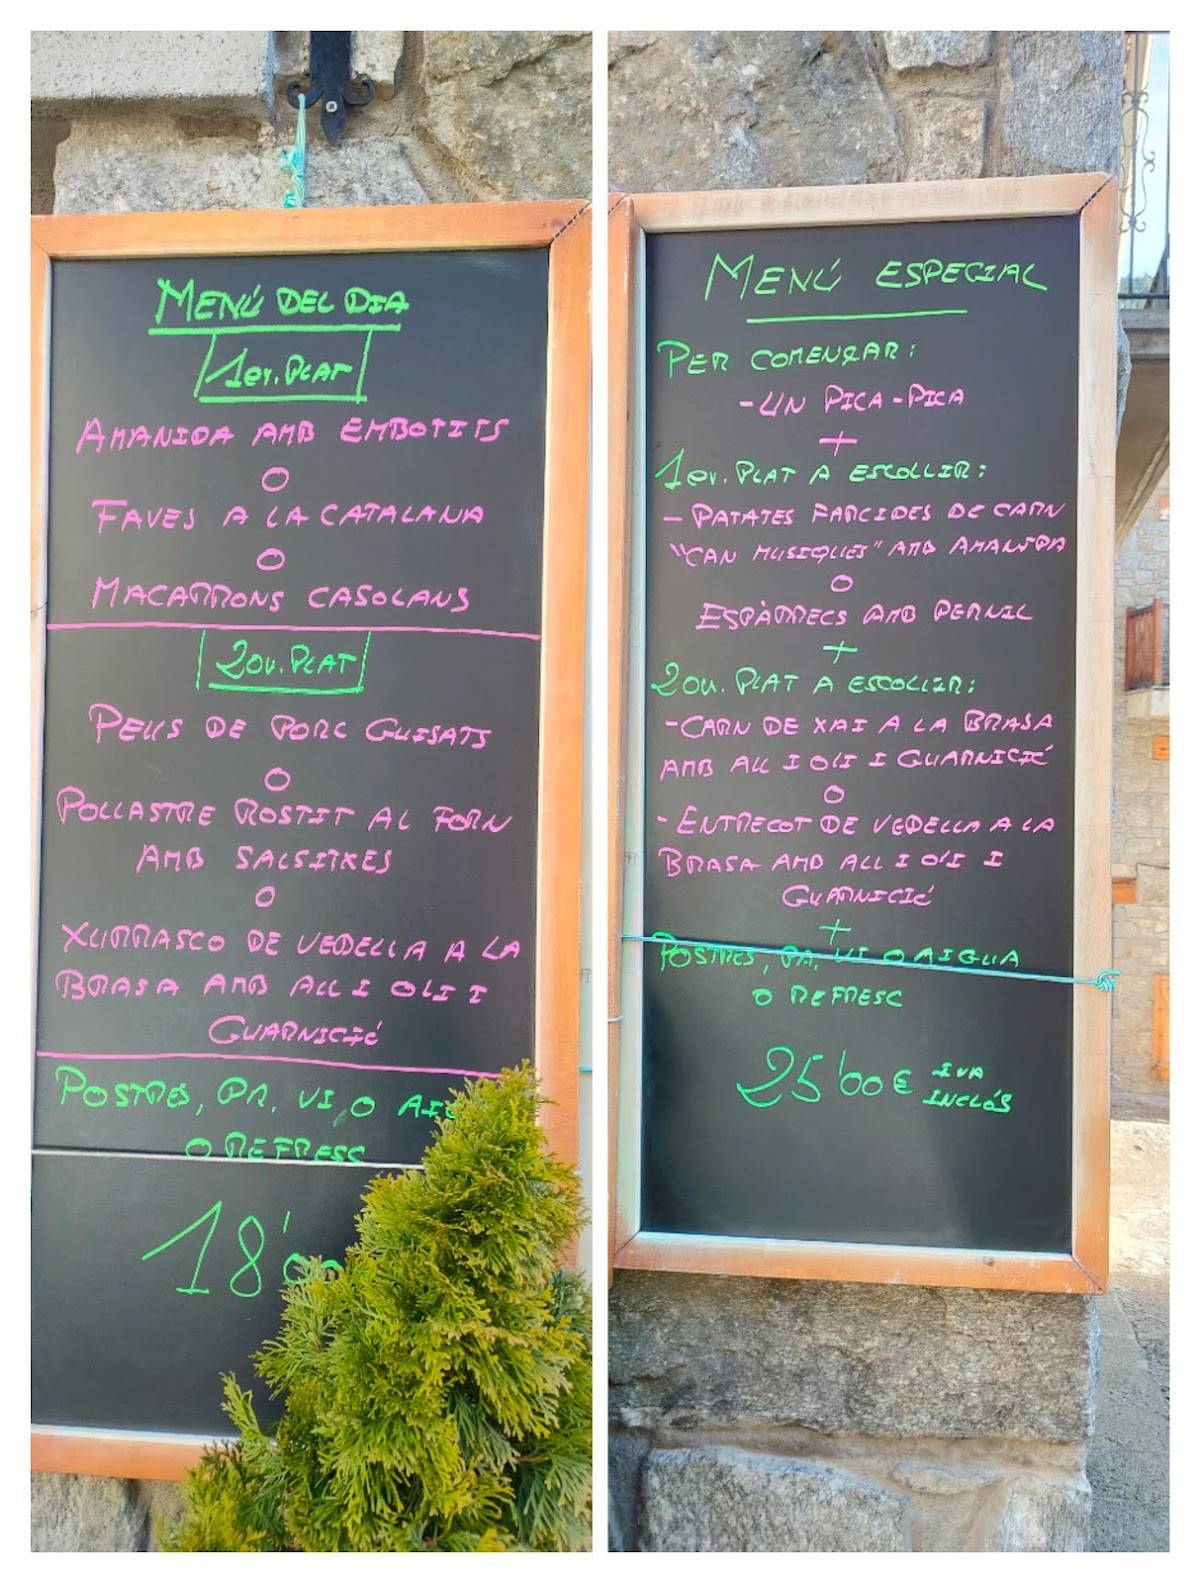 MENÚ DEL DIA
1er. PLAT
AMANIDA AMB EMBOTITS
O
FAVES A LA CATALANA
O
MACARRONS CASOLANS
2ON. PLAT
PEUS DE PORC GUISATS
O
POLLASTRE ROSTIT AL FORN
AMB SALSITXES
O
XURRASCO DE VEDELLA A LA
BRASA AMB ALL I OLI I
GUARNICIÓ
POSTRES, PA, VI, O
O REFRESC
18'00
MENÚ ESPECIAL
PER COMENÇAR:
- UN PICA-PICA
+
1er. PLAT A ESCOLLIR:
- PATATES FARCIDES DE CARN
"CAN MUSIQUES" AMB AMANIDA
O
ESPÀRRECS AMB PERNIL
+
2ON. PLAT A ESCOLLIR:
- CARN DE XAI A LA BRASA
AMB ALL I OLI I GUARNICIÓ
O
- ENTRECOT DE VEDELLA A LA
BRASA AMB ALL I OLI I
GUARNICIÓ
+
POSTRES, PA, VI O AIGUA
O REFRESC
25'00€ IVA
INCLÓS